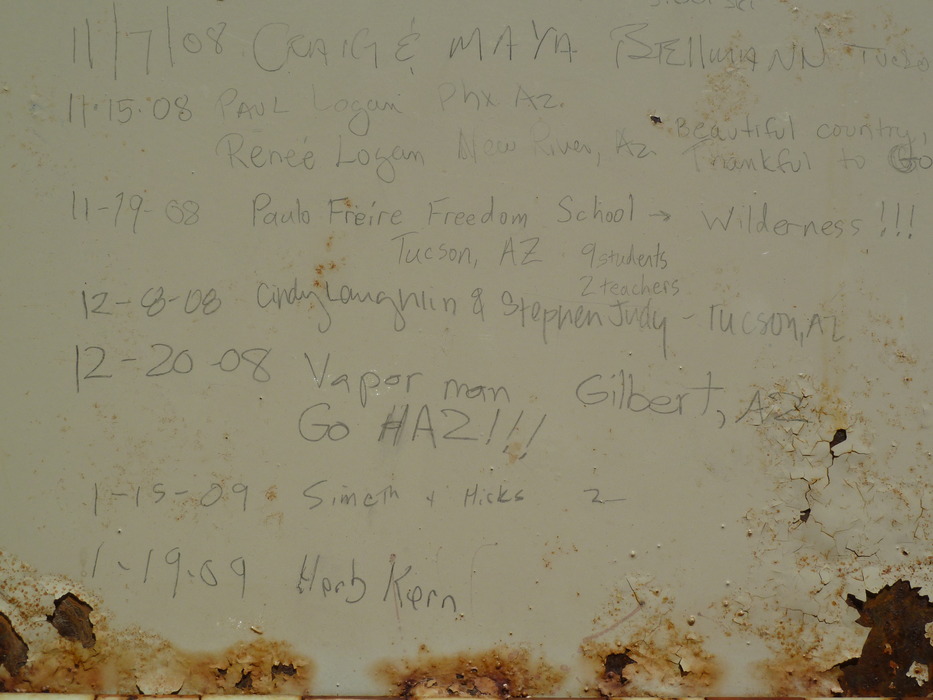 11/7/08 CRAIG & MAYA BELLMANN Tucso
11.15.08 PAUL Logan Phx. Az.
Beautiful country,
Reneé Logan New River, Az. Thankful to Go
11-19-08 Paulo Freire Freedom School → Wilderness!!!
Tucson, AZ 9 students
2 teachers
12-8-08 Cindy Laughlin & Stephen Judy - Tucson, AZ
12-20-08 Vapor man Gilbert, AZ
Go #AZ!!!
1-15-09 Simeth + Hicks 2
1-19-09 Herb Kern